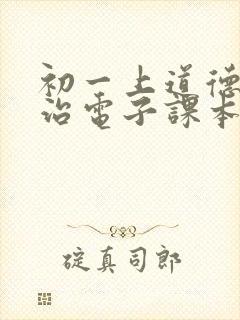 初一上道德
治電子課本
碇真司郎